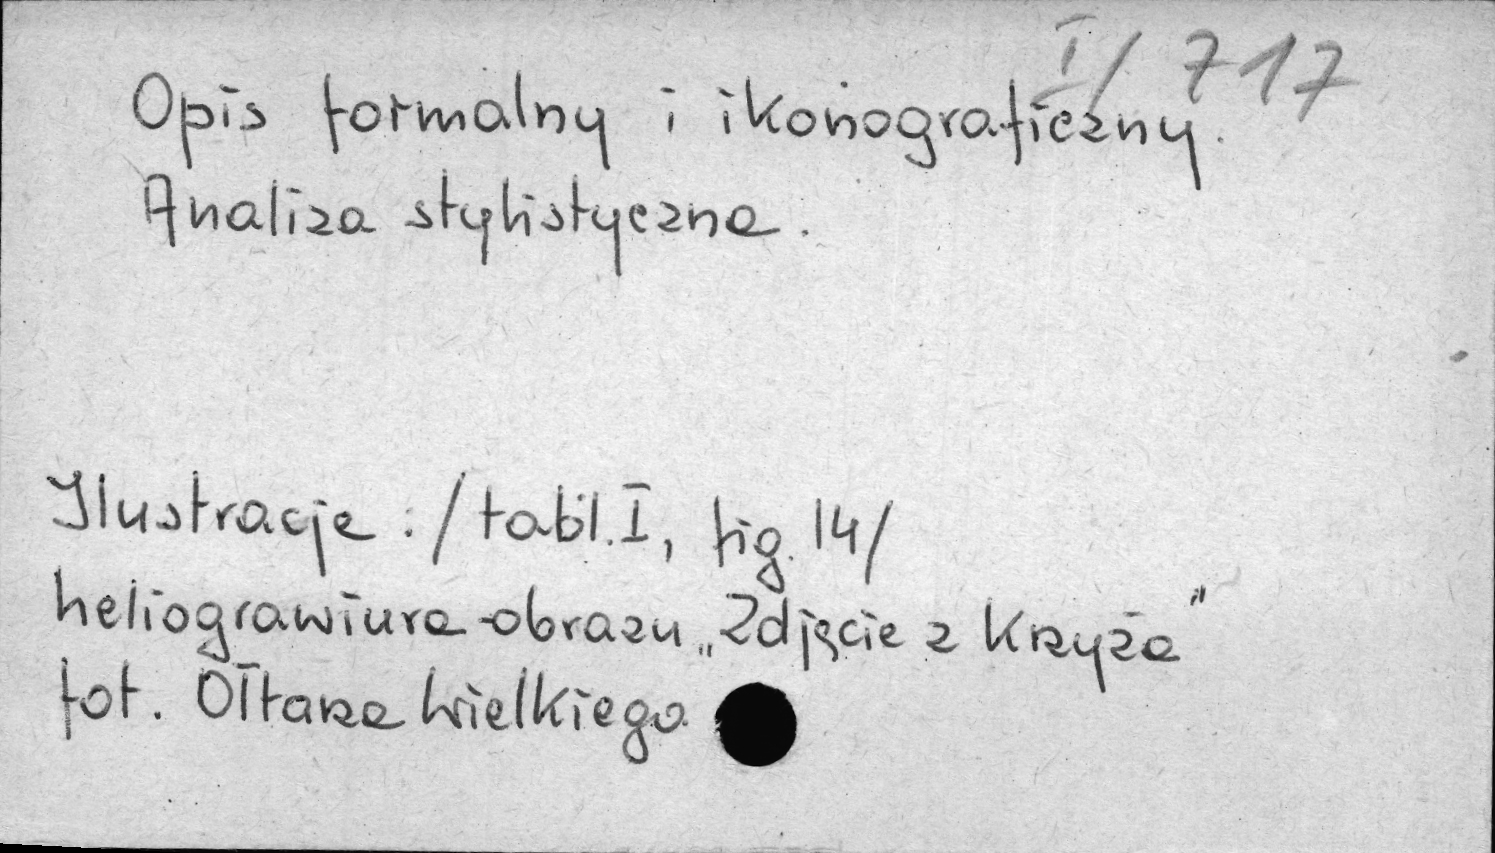 I/717
Opis formalny i ikonograficzny.
Analiza stylistyczna.
Ilustracje : /tabl. I, fig. 14/
heliograwiura obrazu „Zdjęcie z Krzyża"
fot. Ołtarza Wielkiego